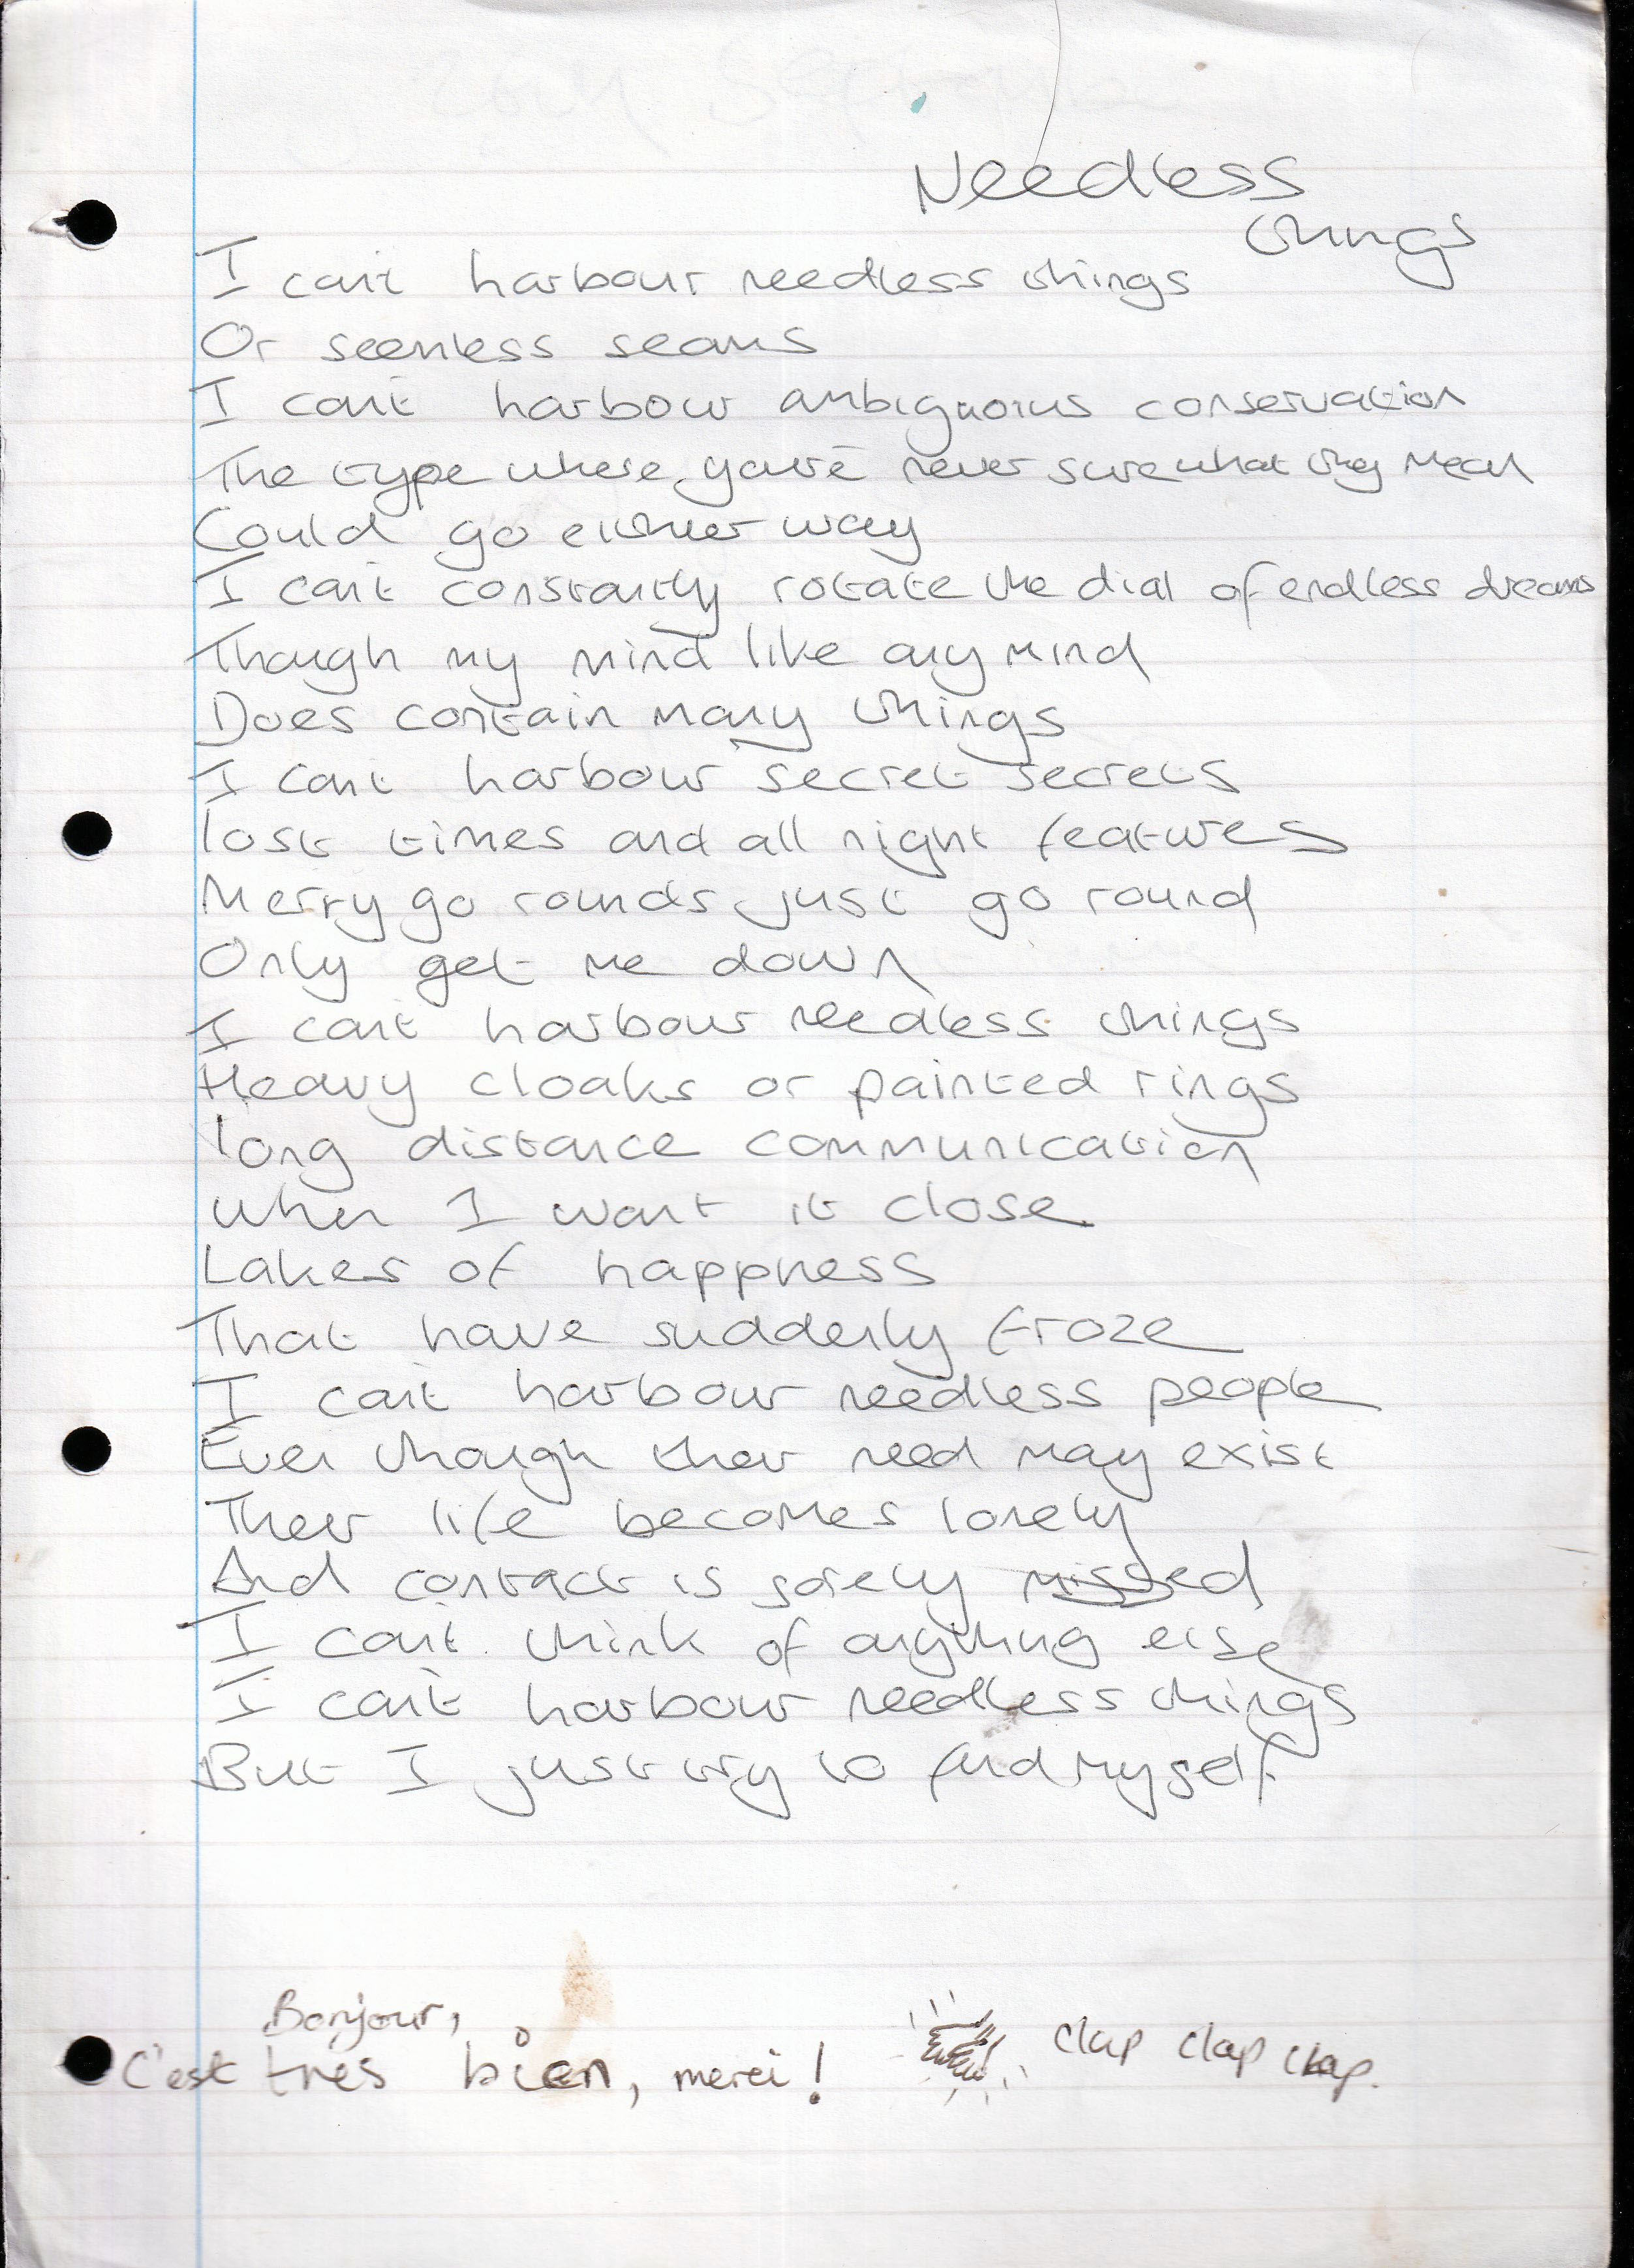 Needless
things
I can't harbour needless things
Or seemless seams
I can't harbour ambiguoius conservation
The type where you're never sure what they mean
Could go either way
I can't constantly rotate the dial of endless dreams
Though my mind like any mind
Does contain many things
I can't harbour secret secrets
lost times and all night features
Merry go rounds just go round
Only get me down
I can't harbour needless things
Heavy cloaks or painted rings
long distance communication
when I want it close
Lakes of happness
That have suddenly froze
I can't harbour needless people
Even though their need may exist
Their life becomes lonely
And contact is sorely missed
I can't think of anything else
I can't harbour needless things
But I just try to find myself
Bonjour,
C'est très bien, merci!
clap clap clap.